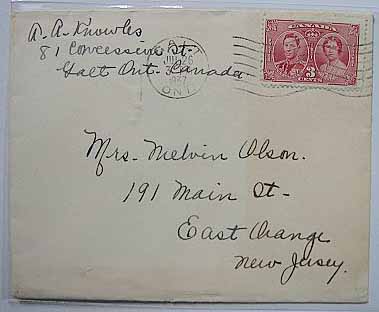 A. A. Knowles
81 Concession St.
Galt Ont- Canada
GALT
26
1937
ONT
CANADA
3 3
CENTS
Mrs. Melvin Olson.
191 Main St-
East Orange
New Jersey.